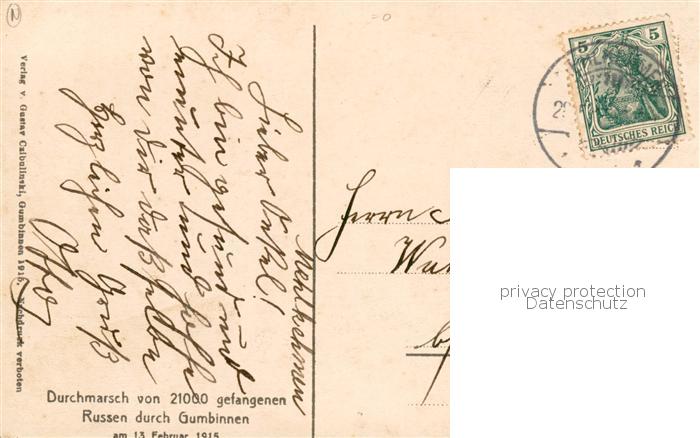 Mehlkehmen
Lieber Onkel!
Ich bin gesund und
munter und hoffe
von dir dasselbe
Herzlichen Gruß
Otto
Verlag v. Gustav Czibulinski, Gumbinnen 1915. Nachdruck verboten
Durchmarsch von 21000 gefangenen
Russen durch Gumbinnen
am 13 Februar 1915
5 5
DEUTSCHES REICH
Herrn
privacy protection
Datenschutz
N